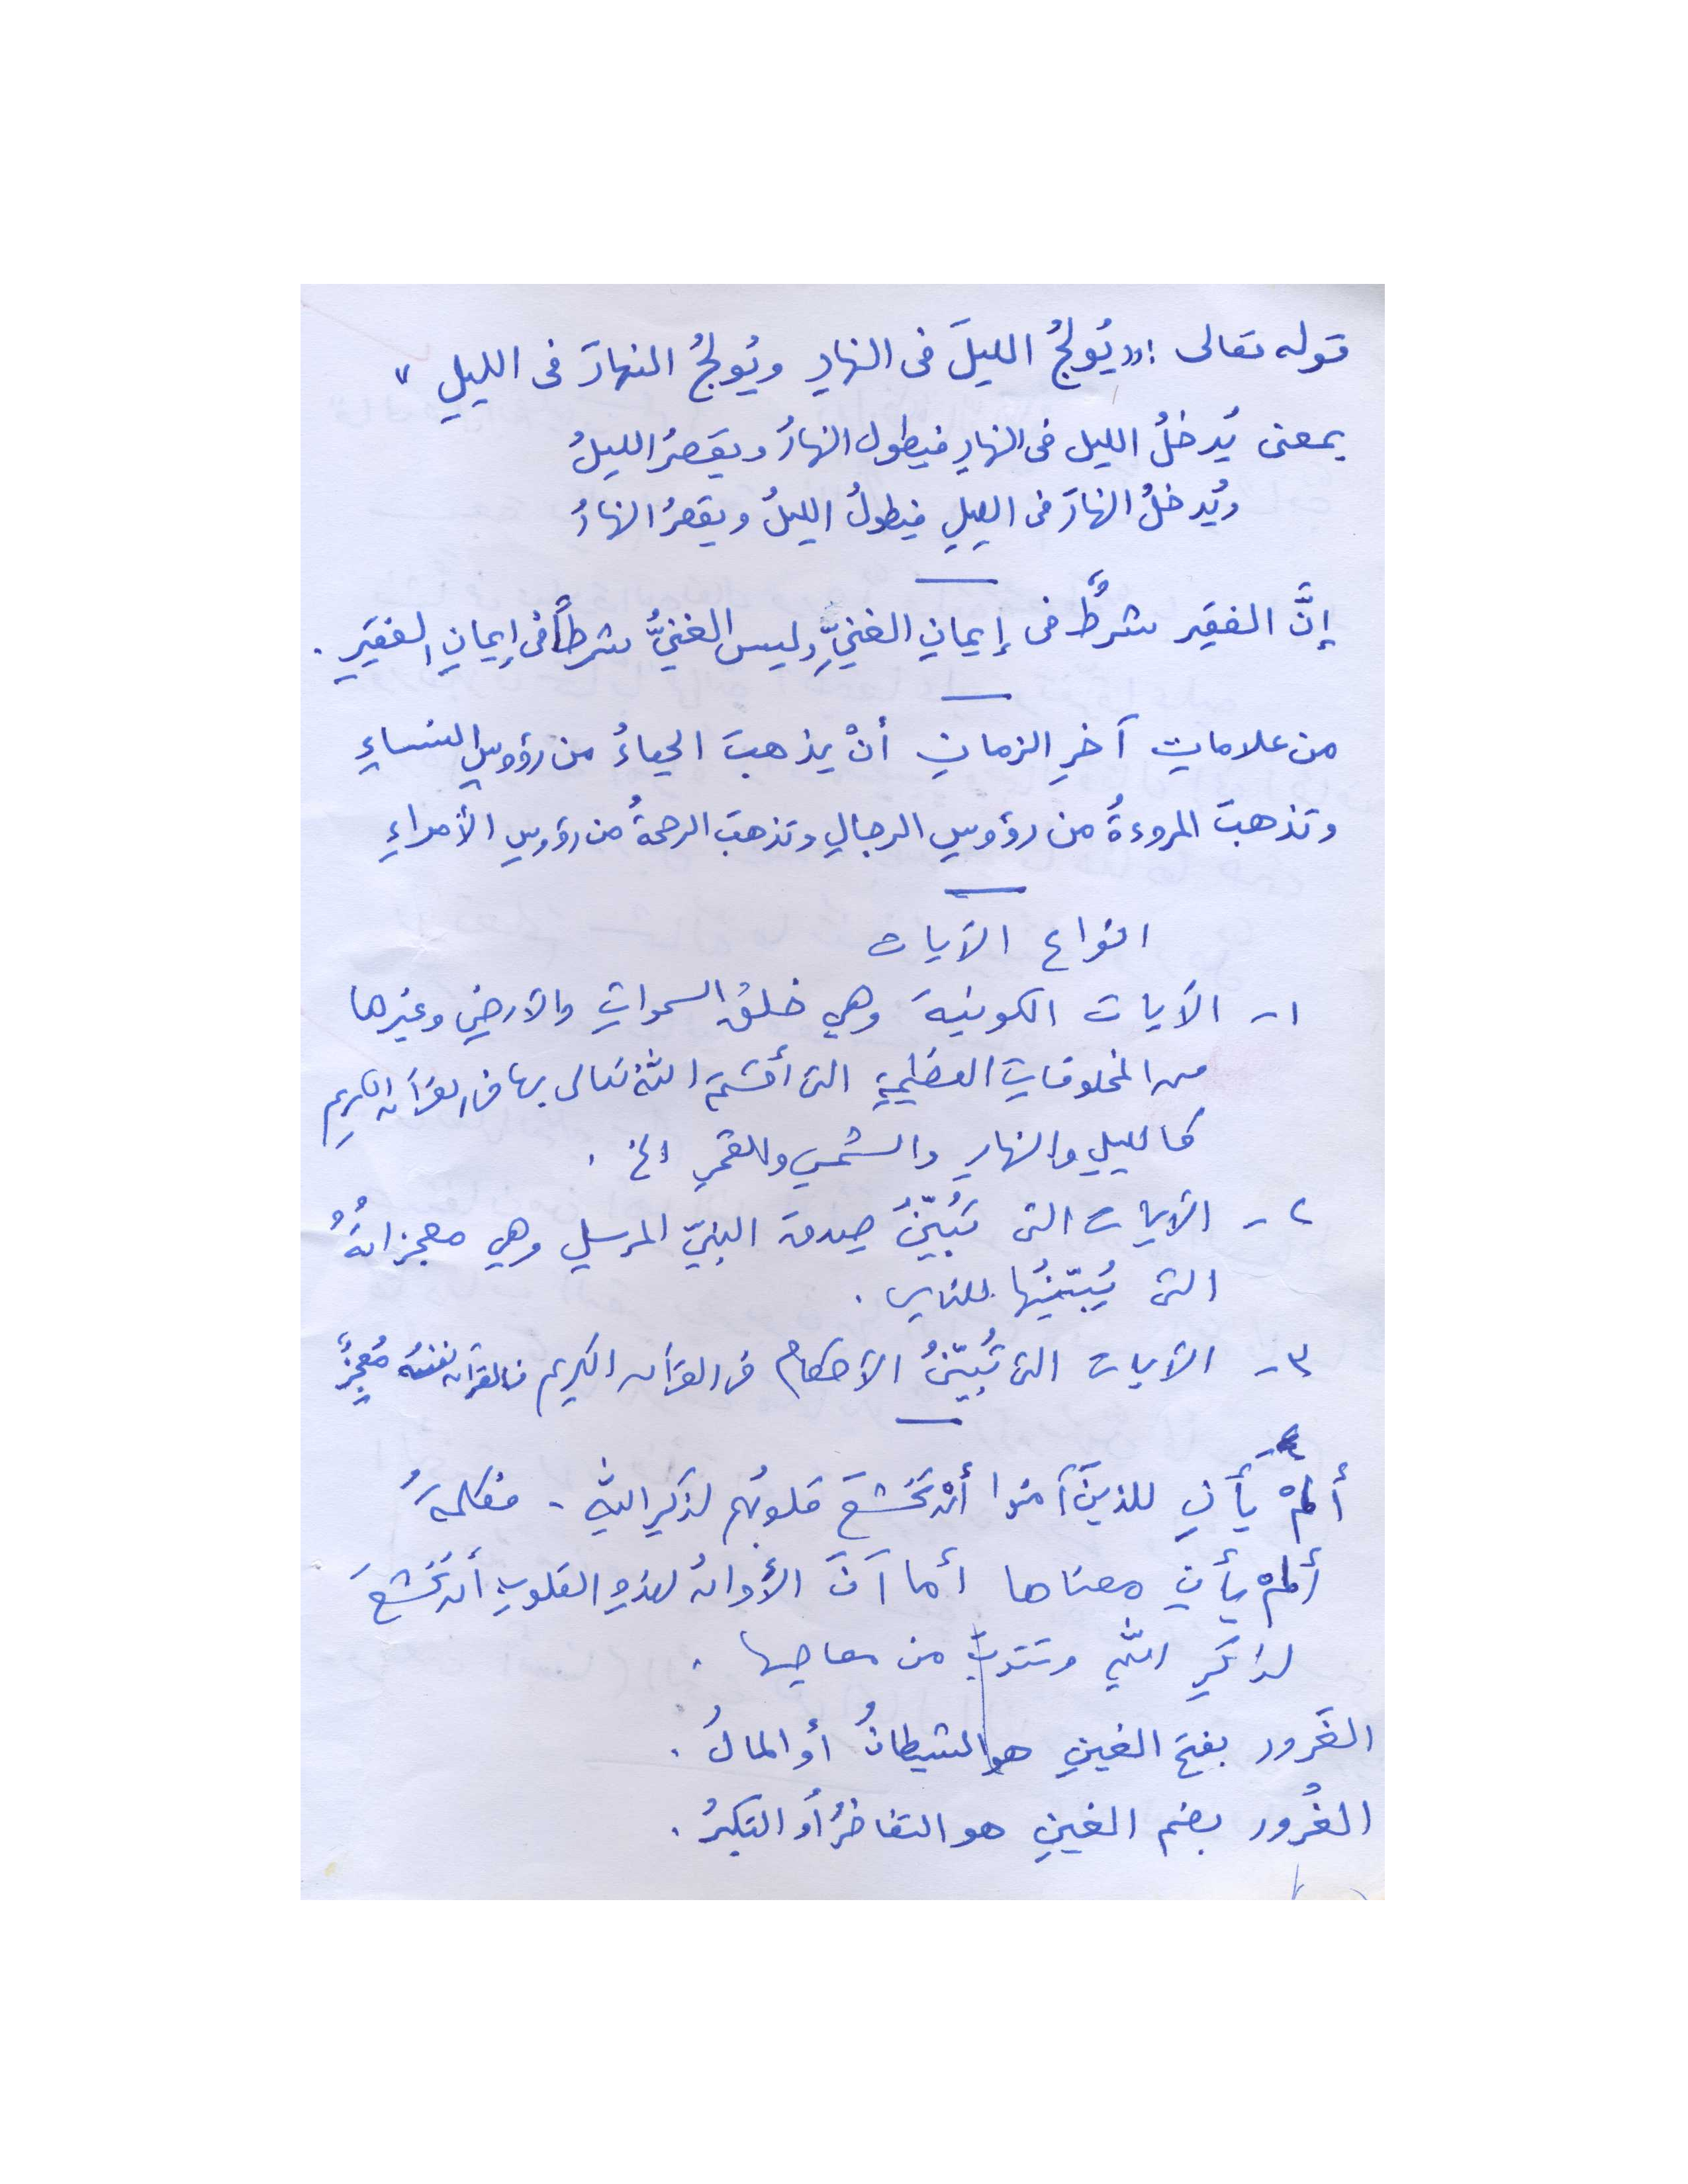 قوله تعالى : « يُولجُ الليلَ فى النهارِ ويُولجُ النهارَ فى الليلِ »
بمعنى يُدخلُ الليل فى النهارِ فيطول النهارُ ويقصرُ الليلُ
ويُدخلُ النهارَ فى الليلِ فيطولُ الليلُ ويقصرُ النهارُ
إنَّ الفقير شرطٌ فى إيمانِ الغنيِّ وليس الغنيُّ شرطاً فى إيمانِ الفقيرِ .
من علاماتِ آخرِ الزمانِ أنْ يذهبَ الحياءُ من رؤوسِ النساءِ
وتذهبَ المروءةُ من رؤوسِ الرجالِ وتذهبَ الرحمةُ من رؤوسِ الأمراءِ
انواع الآيات
١- الآيات الكونية وهي خلقُ السمواتِ والأرضِ وغيرها
من المخلوقاتِ العظيمةِ التى أقسَمَ اللهُ تعالى بها فى القرآن الكريم
كالليلِ والنهارِ والشمسِ والقمرِ الخ .
٢- الآيات التى تُبَيّنُ صدقَ النبيّ المرسلِ وهي معجزاتُهُ
التى يُبَيّنُها للناسِ .
٣- الآيات التى تُبَيّنُ الأحكام فى القرآن الكريم فالقرآن نفسُه مُعجِزٌ
ألمْ يَأنِ للذينَ آمنوا أنْ تَخشعَ قلوبُهم لذكرِ اللهِ - فكلمةُ
ألمْ يأنِ معناها أما آنَ الأوانُ لهذهِ القلوبِ أن تَخشعَ
لذكرِ اللهِ وتتوبَ من معاصيها .
الغَرور بفتح الغينِ هو الشيطانُ أو المالُ .
الغُرور بضم الغينِ هو التفاخرُ أو التكبرُ .